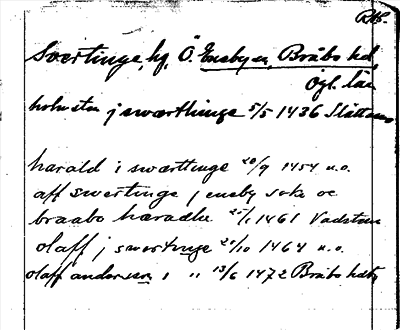 Svertinge, hg, Ö. Eneby sn, Bråbo hd,
Ögl. län
holmsten j swærthinge 5/5 1436
harald i swærttinge 20/9 1454 u.o.
aff swertinge j eneby sokn oc
braabo hæradhe 1461 Vadstena
olaff j swertinge 25/10 1464 u.o.
olaff anderson i " 13/6 1472 Bråbo hds